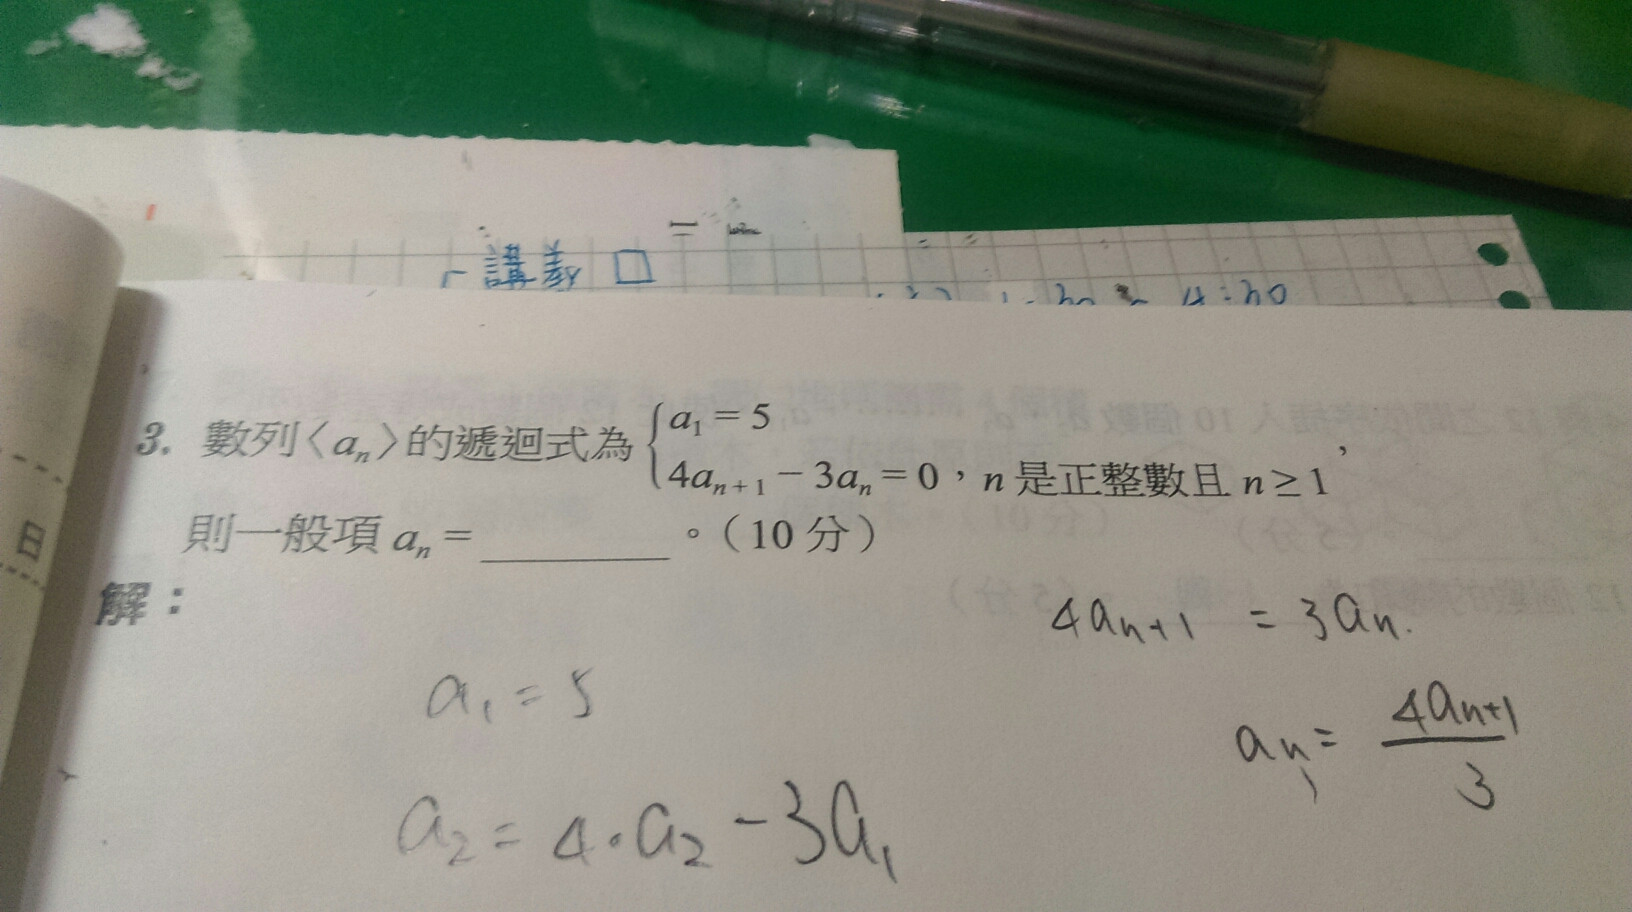 「講義 □
4:30
3. 數列〈aₙ〉的遞迴式為 { a₁ = 5
4aₙ₊₁ − 3aₙ = 0，n 是正整數且 n ≥ 1 ，
則一般項 aₙ = ______ 。（10 分）
解：
4aₙ₊₁ = 3aₙ.
a₁ = 5
aₙ = 4aₙ₊₁ / 3
a₂ = 4·a₂ − 3a₁
日